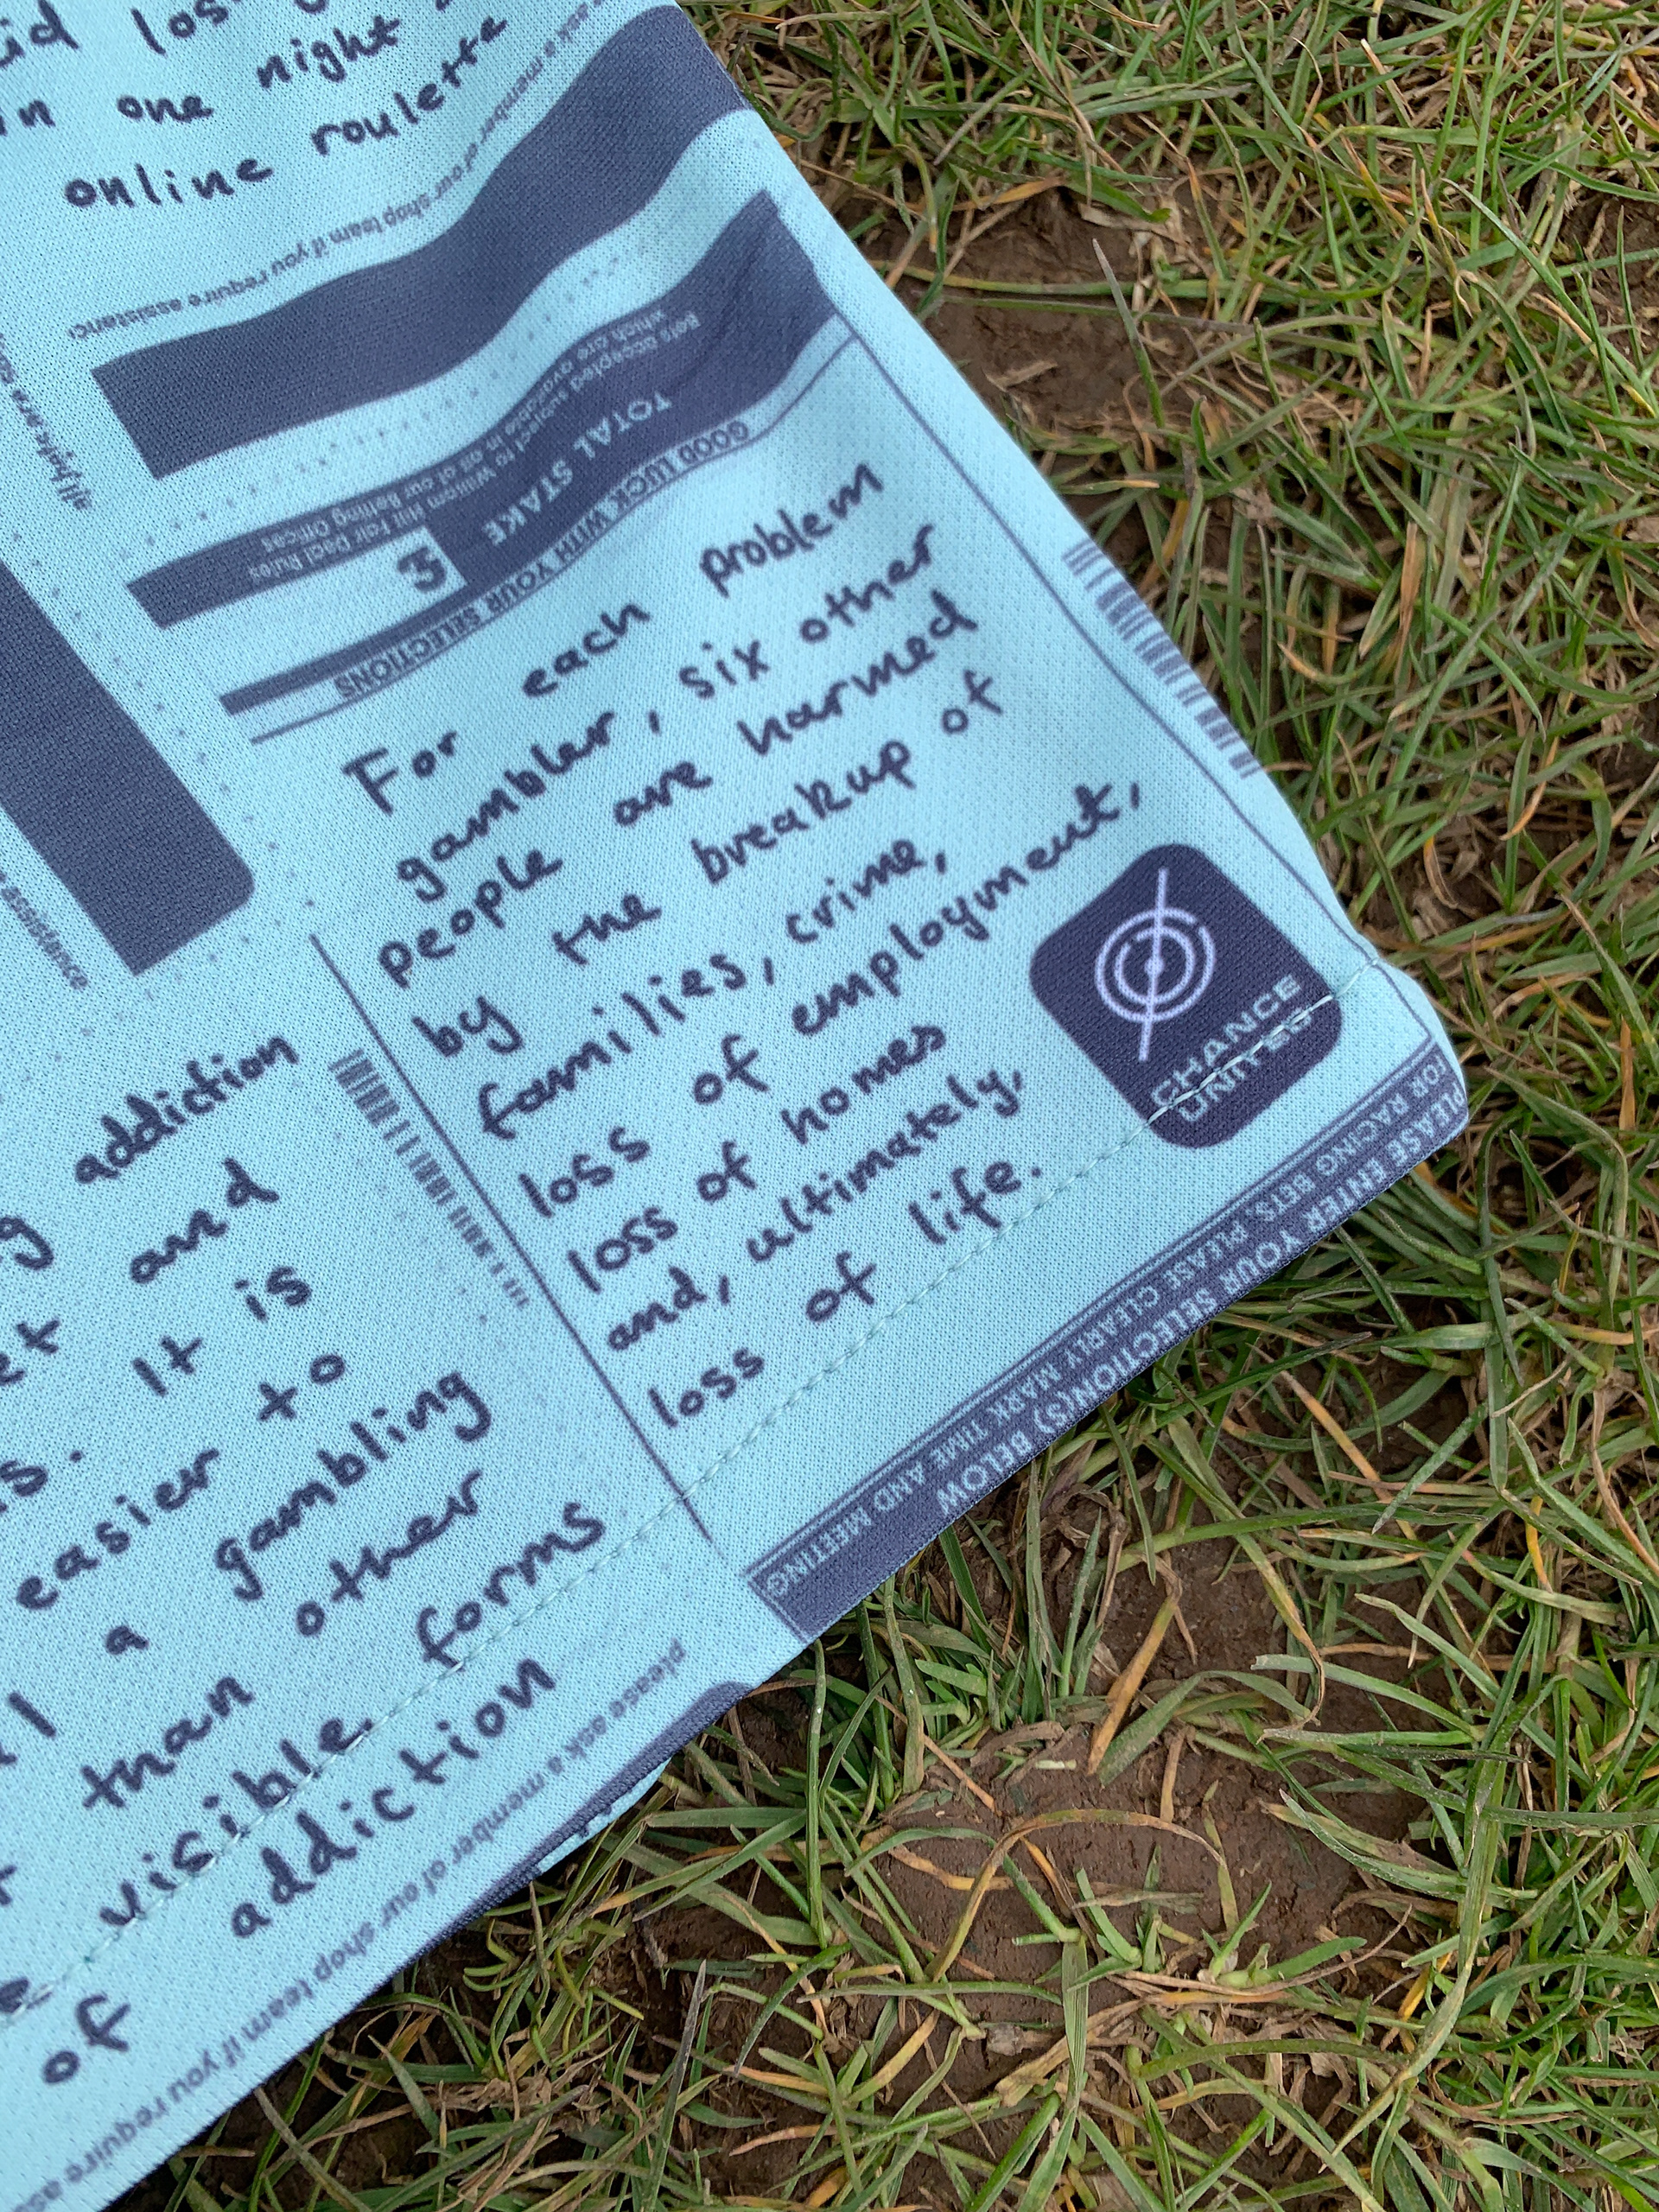 in one night
online roulette
ask a member of our shop team if you require assistanc
Bets accepted subject to William Hill Fair Deal Rules
which are available in all of our Betting Offices
TOTAL STAKE
3
GOOD LUCK WITH YOUR SELECTIONS
For each problem
gambler, six other
people are harmed
by the breakup of
families, crime,
loss of employment,
loss of homes
and, ultimately,
loss of life.
CHANCE
UNITED
PLEASE ENTER YOUR SELECTION(S) BELOW
FOR RACING BETS, PLEASE CLEARLY MARK TIME AND MEETING
addiction
and
It is
easier to
a gambling
than other
visible forms
of addiction
please ask a member of our shop team if you require